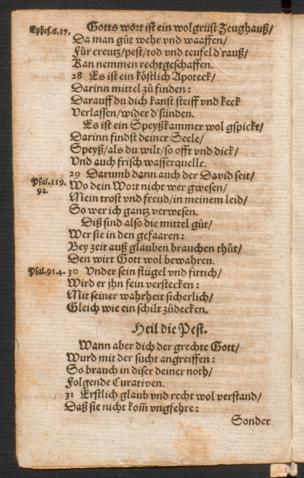 Ephes.6.17. Gotts wort ist ein wol grüst Zeughauß/
Da man güt wehr vnd waaffen/
Für creutz/pest/tod vnd teufel d'rauß/
Kan nemmen rechtgeschaffen.
28 Es ist ein köstlich Apoteck/
Darinn mittel zů finden:
Darauff du dich kanst steiff vnd keck
Verlassen/wider d'sünden.
Es ist ein Speyßkammer wol gspickt/
Darinn findst deiner Seele/
Speyß/als du wilt/so offt vnd dick/
Vnd auch frisch wasserquelle.
29 Darumb dann auch der David seit/
Psal.119. 92. Wo dein Wort nicht wer gwesen/
Mein trost vnd freud/in meinem leid/
So wer ich gantz verwesen.
Diß sind also die mittel güt/
Wer sie in den gefaaren:
Bey zeit auß glauben brauchen thüt/
Den wirt Gott wol bewahren.
Psal.91.4. 30 Vnder sein flügel vnd fittich/
Wird er jhn fein verstecken:
Mit seiner wahrheit sicherlich/
Gleich wie ein schilt zůdecken.
Heil die Pest.
Wann aber dich der grechte Gott/
Wurd mit der sucht angreiffen:
So brauch in diser deiner noth/
Folgende Curativen.
31 Erstlich glaub vnd recht wol verstand/
Daß sie nicht kom̃ vngfehre:
Sonder